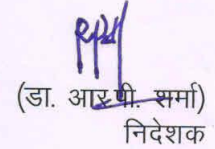 (डा. आर. पी. शर्मा)
निदेशक